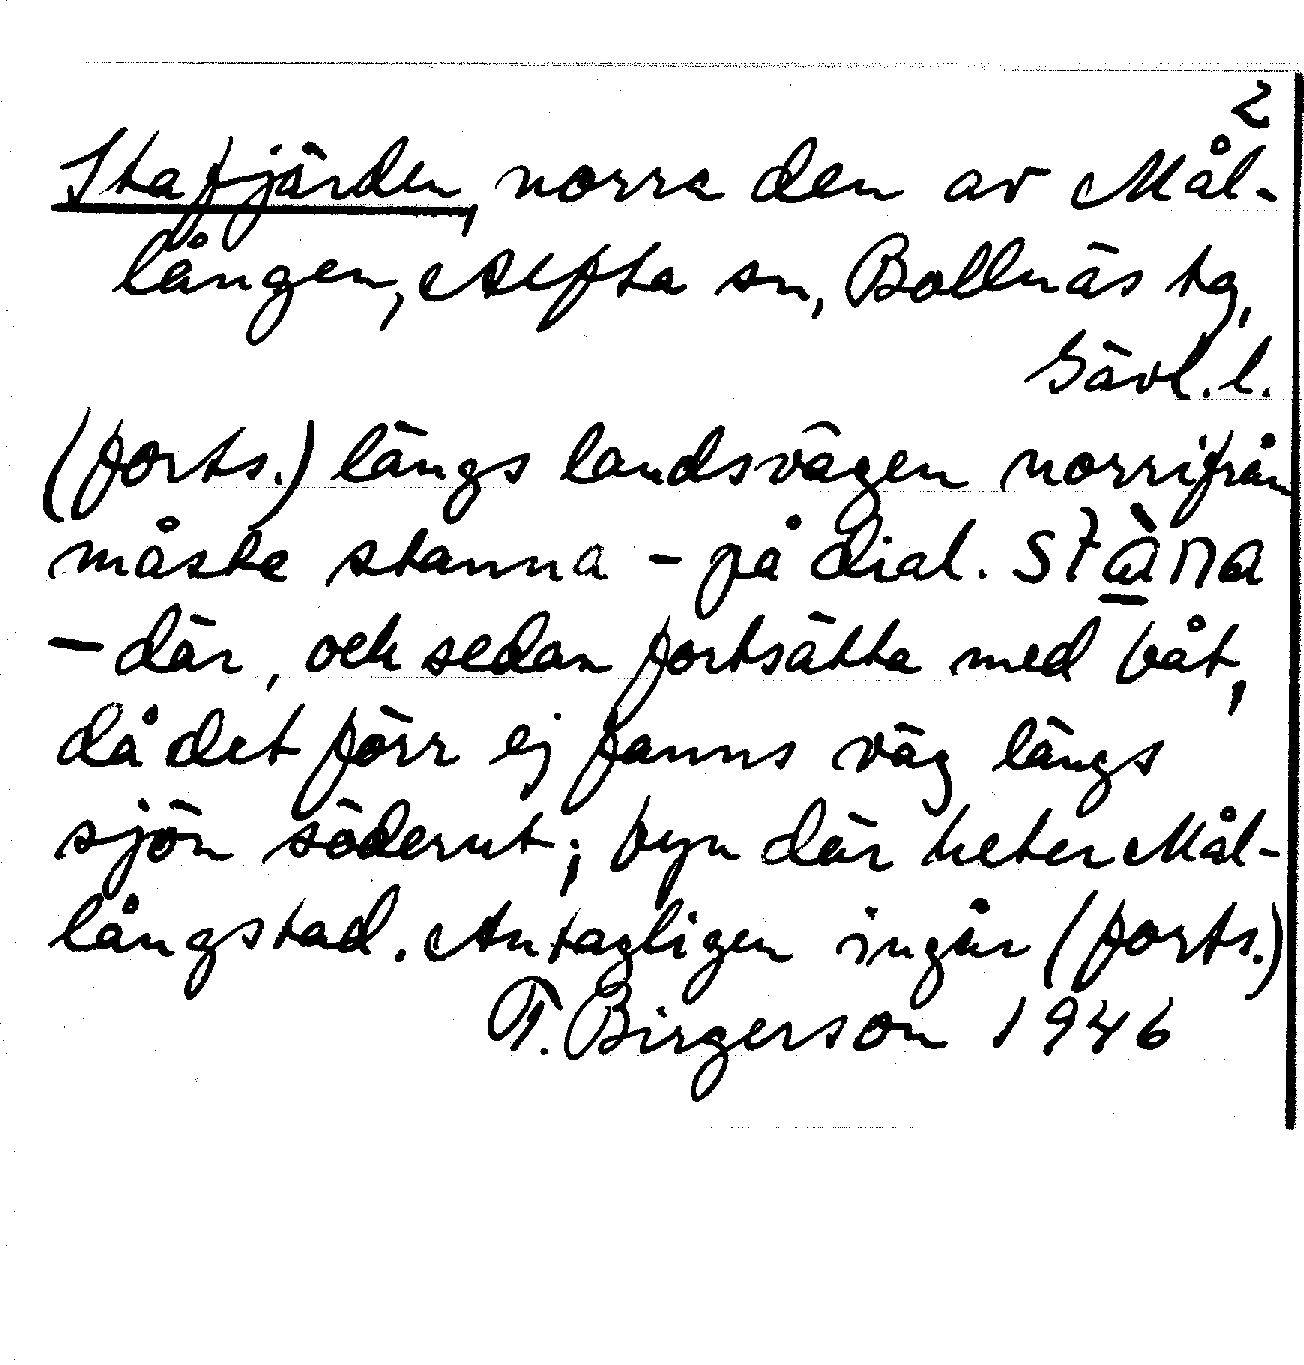 2
Stafjärden, norra den av Mål-
lången, Alfta sn, Bollnäs tg,
Gävl. l.
(forts.) längs landsvägen norrifrån
måste stanna – på dial. stàna
– där, och sedan fortsätta med båt,
då det förr ej fanns väg längs
sjön söderut; byn där heter Mål-
långstad. Antagligen ingår (forts.)
T. Birgerson 1946